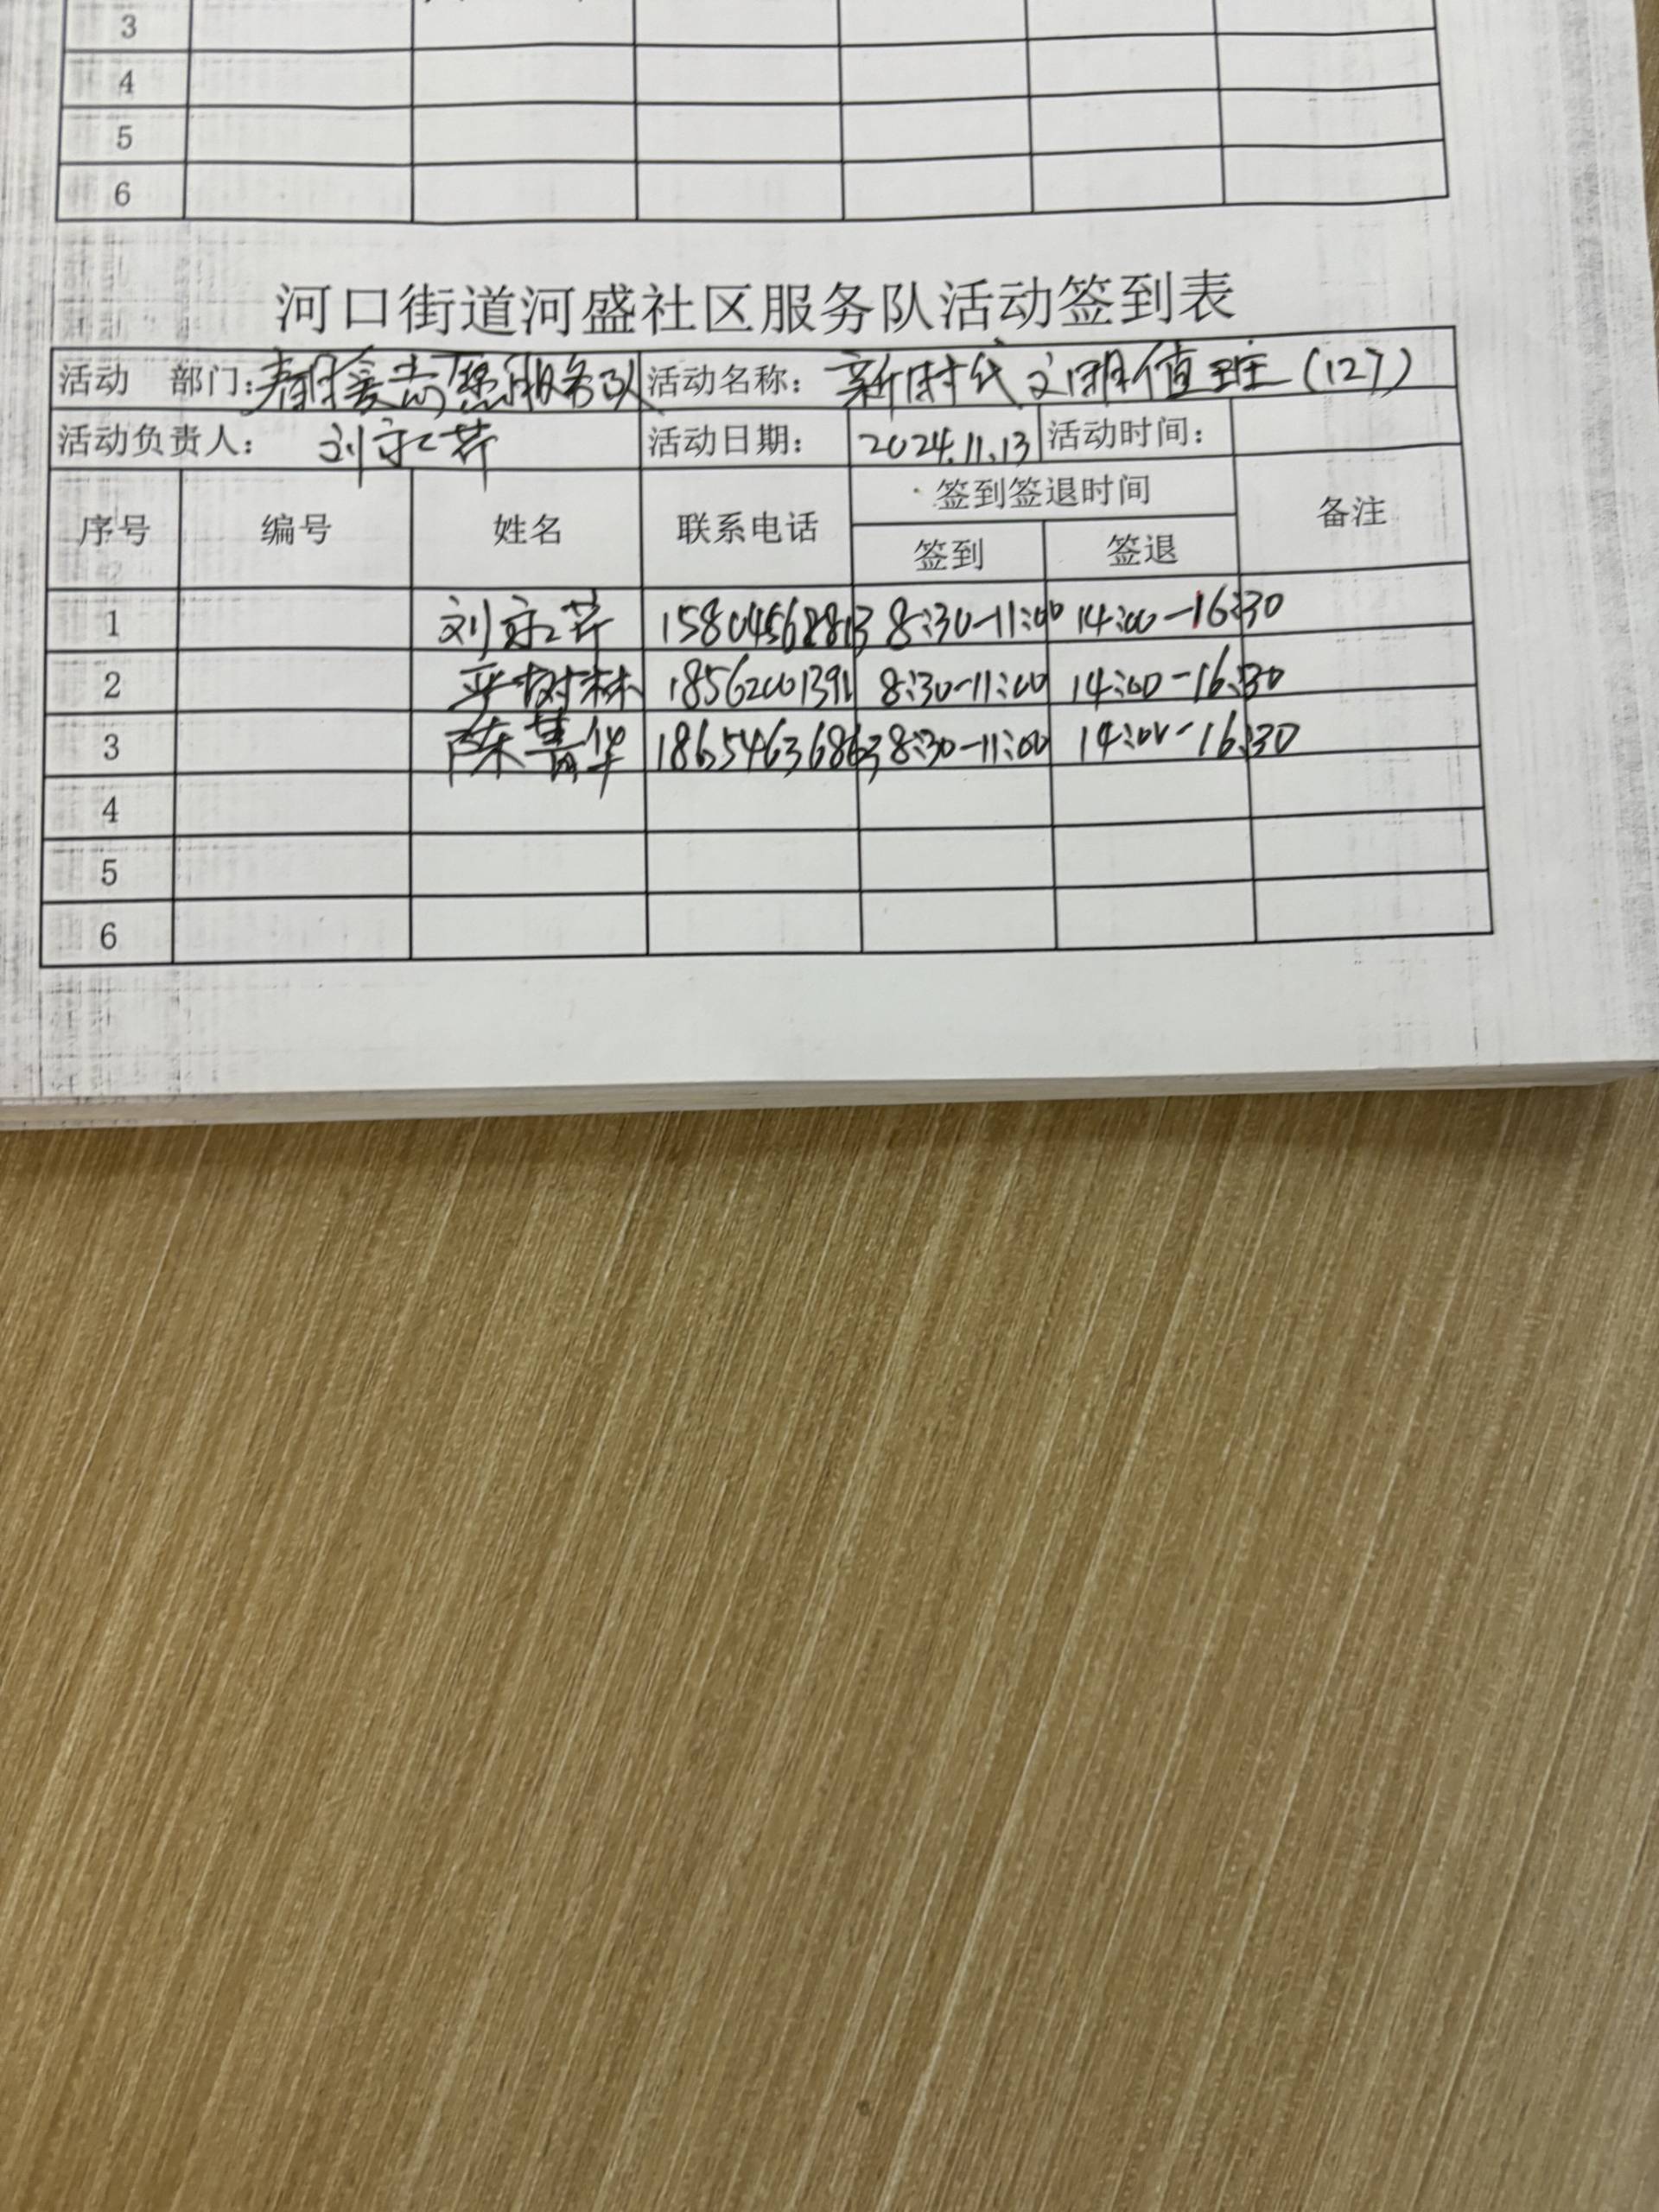 3
4
5
6
河口街道河盛社区服务队活动签到表
活动 部门：春暖志愿服务队 活动名称：新时代文明值班（127）
活动负责人： 刘永芹 活动日期： 2024.11.13 活动时间：
序号 编号 姓名 联系电话 签到签退时间 备注
签到 签退
1 刘永芹 15804562813 8:30-11:00 14:00-16:30
2 树林 18562001391 8:30-11:00 14:00-16:30
3 陈菁华 18654636863 8:30-11:00 14:00-16:30
4
5
6